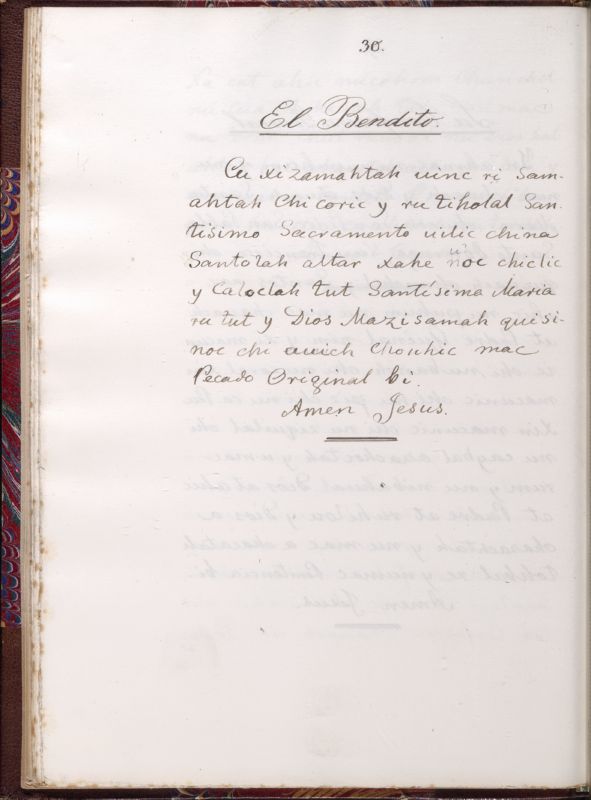 30.
El Bendito.
Cu xizamahtah uinc ri Sam-
ahtah Chi coric y ru tiholal San-
tisimo Sacramento uilic china
Santolah altar xahe noc chiclic
y Caloclah tut Santísima Maria
ru tut y Dios Mazisamah qui si-
noc chi auich Choschic mac
Pecado Original bi.
Amen Jesus.